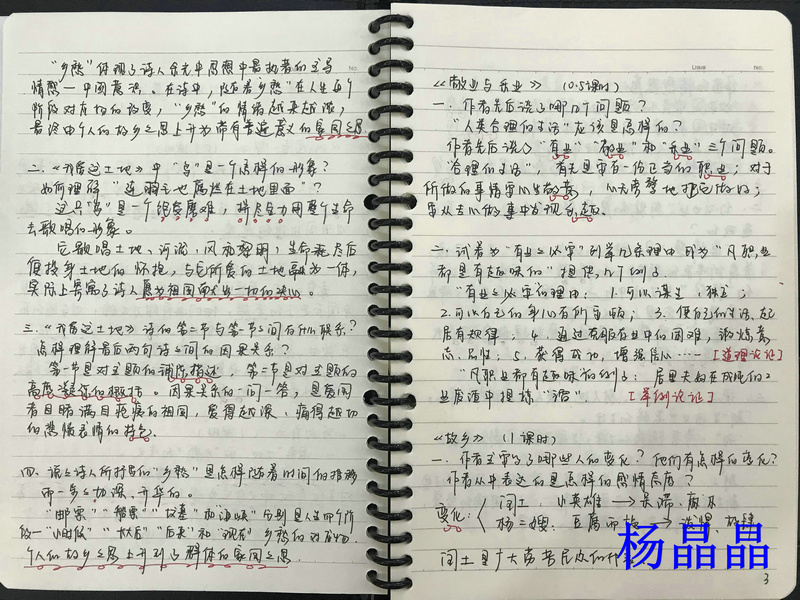 "乡愁"体现了诗人余光中思想中最执着的主导
情感—中国意识。在诗中,随着乡愁"在人生每个
阶段对应物的改变,"乡愁"的情绪越来越浓,
最终由个人的故乡之思上升为带有普遍意义的家国之思
二、《我爱这土地》中"鸟"是一个怎样的形象?
如何理解"连羽毛也腐烂在土地里面"?
这只"鸟"是一个饱受磨难,拼尽全力用整个生命
去歌唱的形象。
它歌唱土地、河流、风和黎明;生命耗尽后
便投身土地的怀抱,与它所爱的土地融为一体,
实际上寄寓了诗人愿为祖国献出一切的决心。
三、《我爱这土地》诗的第二节与第一节之间有什么联系?
怎样理解最后两句诗之间的因果关系?
第一节是对主题的铺陈描述,第二节是对主题的
高度凝练的概括。因果关系的一问一答,是爱国
者目睹满目疮痍的祖国,爱得越深、痛得越切
的悲愤衷情的
四、说说诗人所抒发的"乡愁"是怎样随着时间的推移
而一步步加深、升华的。
"邮票""船票""坟墓"和"海峡"分别是人生四个阶
段—"小时候""长大""后来"和"现在"乡愁的对应物。
个人的故乡之思上升到
的家国之思
No.
《敬业与乐业》(0.5课时)
一、作者先后谈了哪几个问题?
"人类合理的生活"应该是怎样的?
作者先后谈了"有业""敬业"和"乐业"三个问题。
"合理的生活",首先要有一份正当的职业;对于
所做的事情要心生敬意,心无旁骛地把它做好;
要从去心做事中发现乐趣。
二、试着为"有业之必要"列举几条理由,为"凡职业
都是有趣味的"提供几个例子。
"有业之必要"的理由:1.可以谋生、独立;
2.可以让自己的身心有所寄托;3.使自己的生活、起
居有规律;4.通过克服在业中的困难,锻炼意
志、品性;5.获得成功,增强信心…… [道理论证]
"凡职业都有趣味"的例子:居里夫妇在成吨的工
业废渣中提炼"镭"。 [举例论证]
《故乡》(1课时)
一、作者主要写了哪些人的变化?他们有怎样的变化?
作者从中表达的是怎样的感情态度?
变化:
闰土:小英雄→
杨二嫂:豆腐西施→
闰土是广大贫苦农民
杨晶晶
3